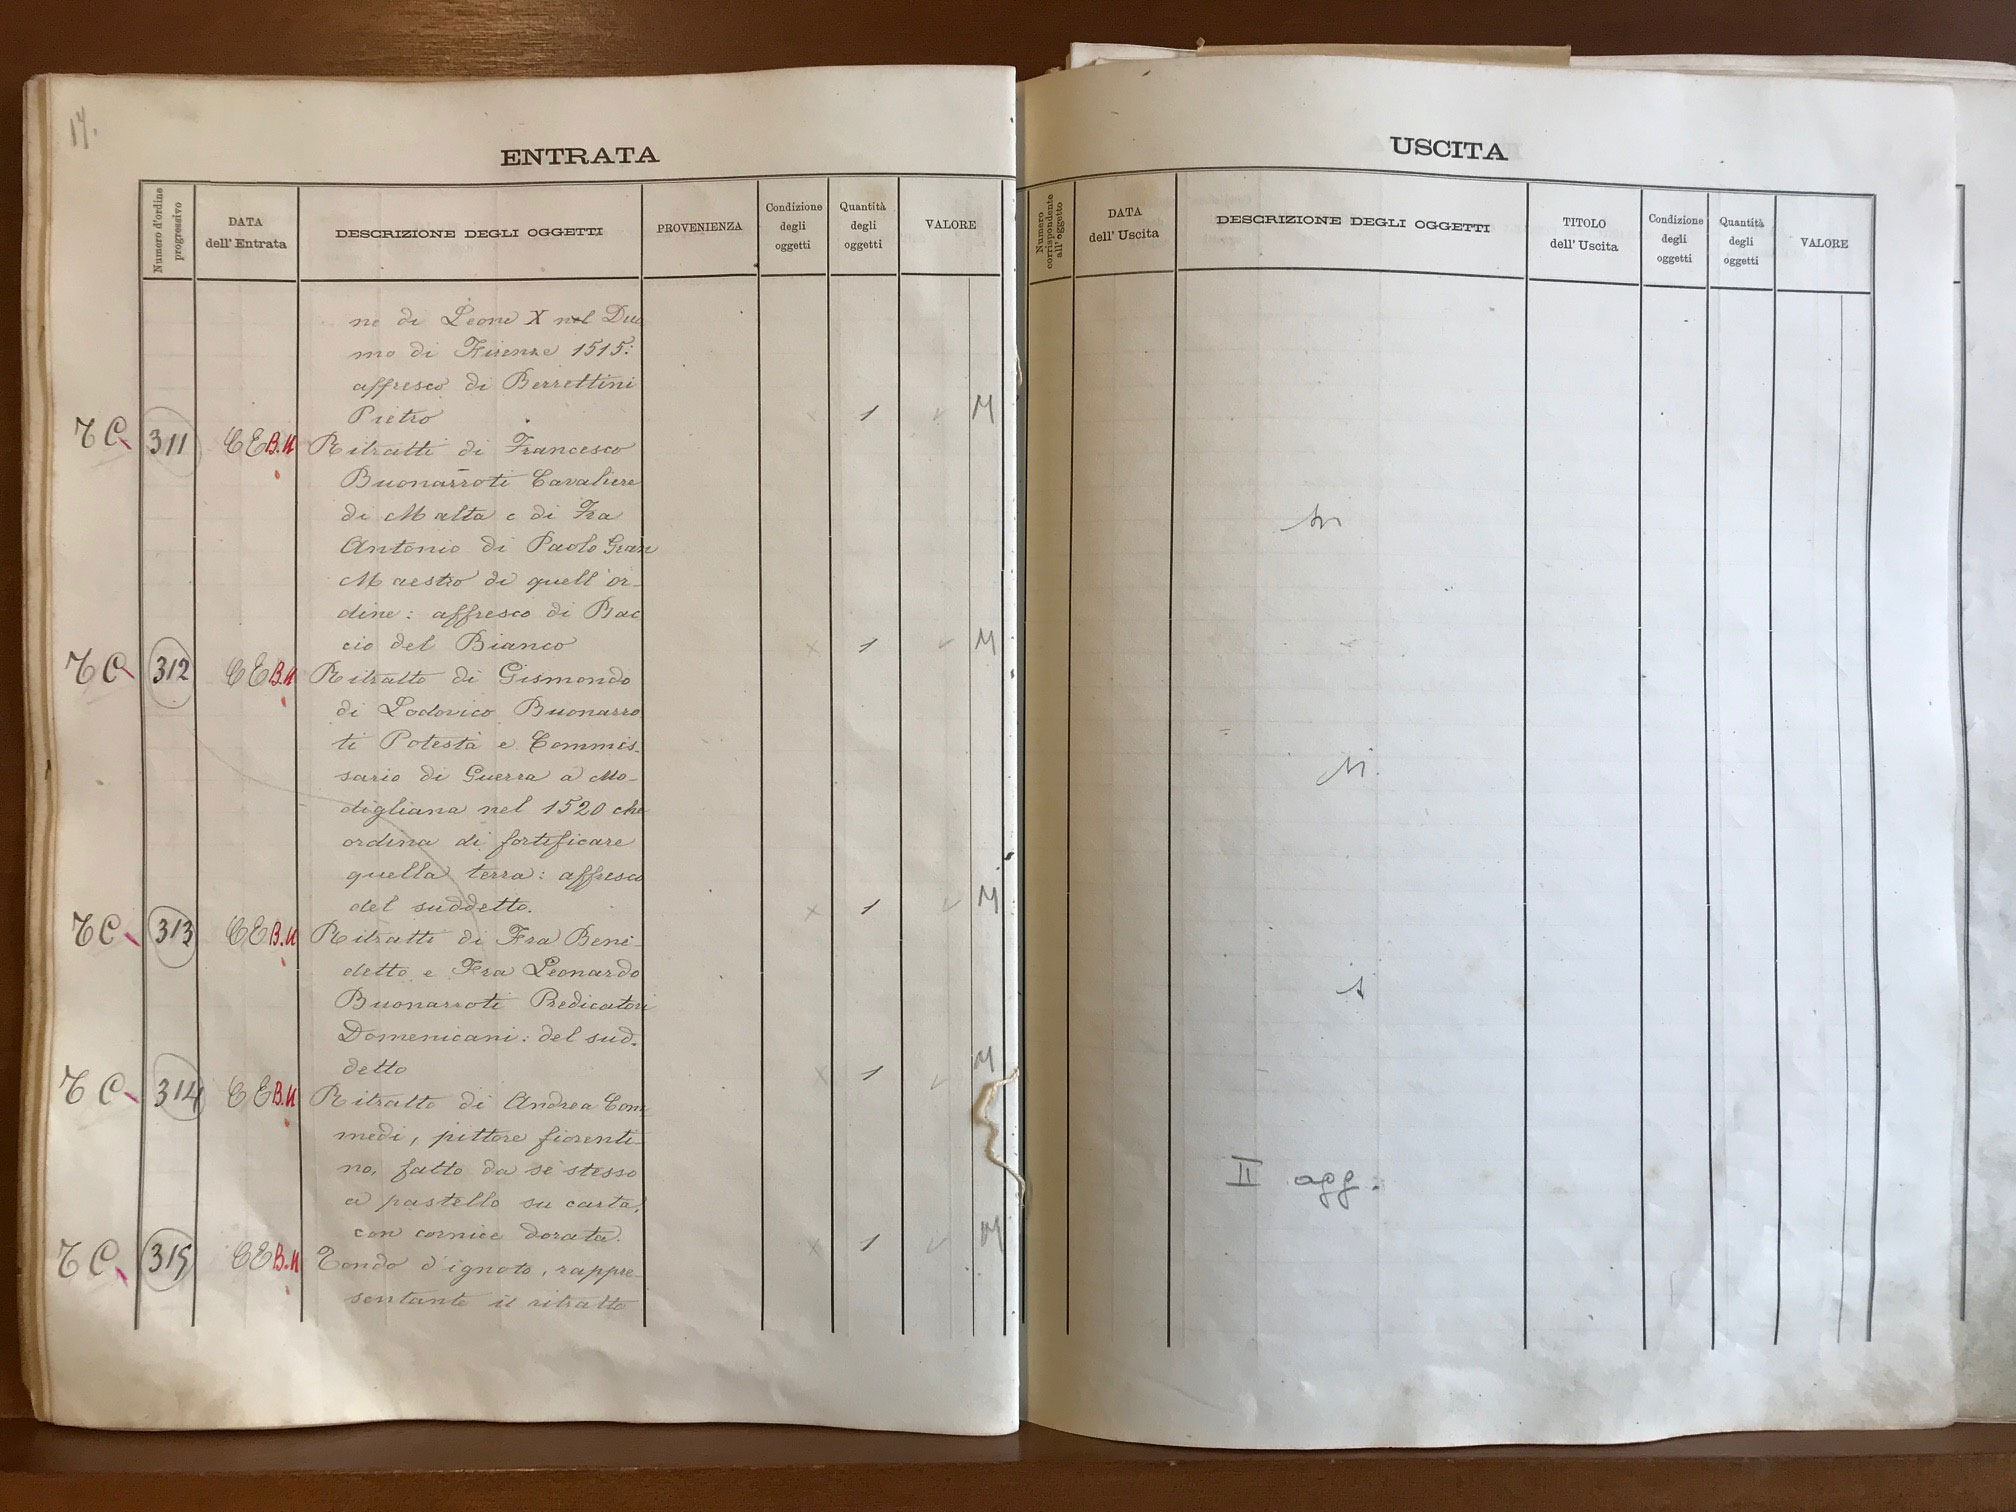 17.
ENTRATA
Numero d'ordine progressivo
DATA dell' Entrata
DESCRIZIONE DEGLI OGGETTI
PROVENIENZA
Condizione degli oggetti
Quantità degli oggetti
VALORE
ne di Leone X nel Duo
mo di Firenze 1515:
affresco di Berrettini
Pietro 1 M
TC 311 CEB.N Ritratti di Francesco
Buonarroti Cavaliere
di Malta e di Fra
Antonio di Paolo Gran
Maestro di quell'or-
dine: affresco di Bac
cio del Bianco × 1 M
TC 312 CEB.N Ritratto di Gismondo
di Lodovico Buonarro
ti Potestà e Commis-
sario di Guerra a Mo-
digliana nel 1520 che
ordina di fortificare
quella terra: affresco
del suddetto. × 1 M
TC 313 CEB.N Ritratti di Fra Bene-
detto e Fra Leonardo
Buonarroti Predicatori
Domenicani: del sud-
detto × 1 M
TC 314 CEB.N Ritratto di Andrea Com
medi, pittore fiorenti-
no, fatto da sè stesso
a pastello su carta,
con cornice dorata. × 1 M
TC 315 CEB.N Tondo d'ignoto, rappre-
sentante il ritratto
USCITA
Numero corrispondente all' oggetto
DATA dell' Uscita
DESCRIZIONE DEGLI OGGETTI
TITOLO dell' Uscita
Condizione degli oggetti
Quantità degli oggetti
VALORE
II agg.